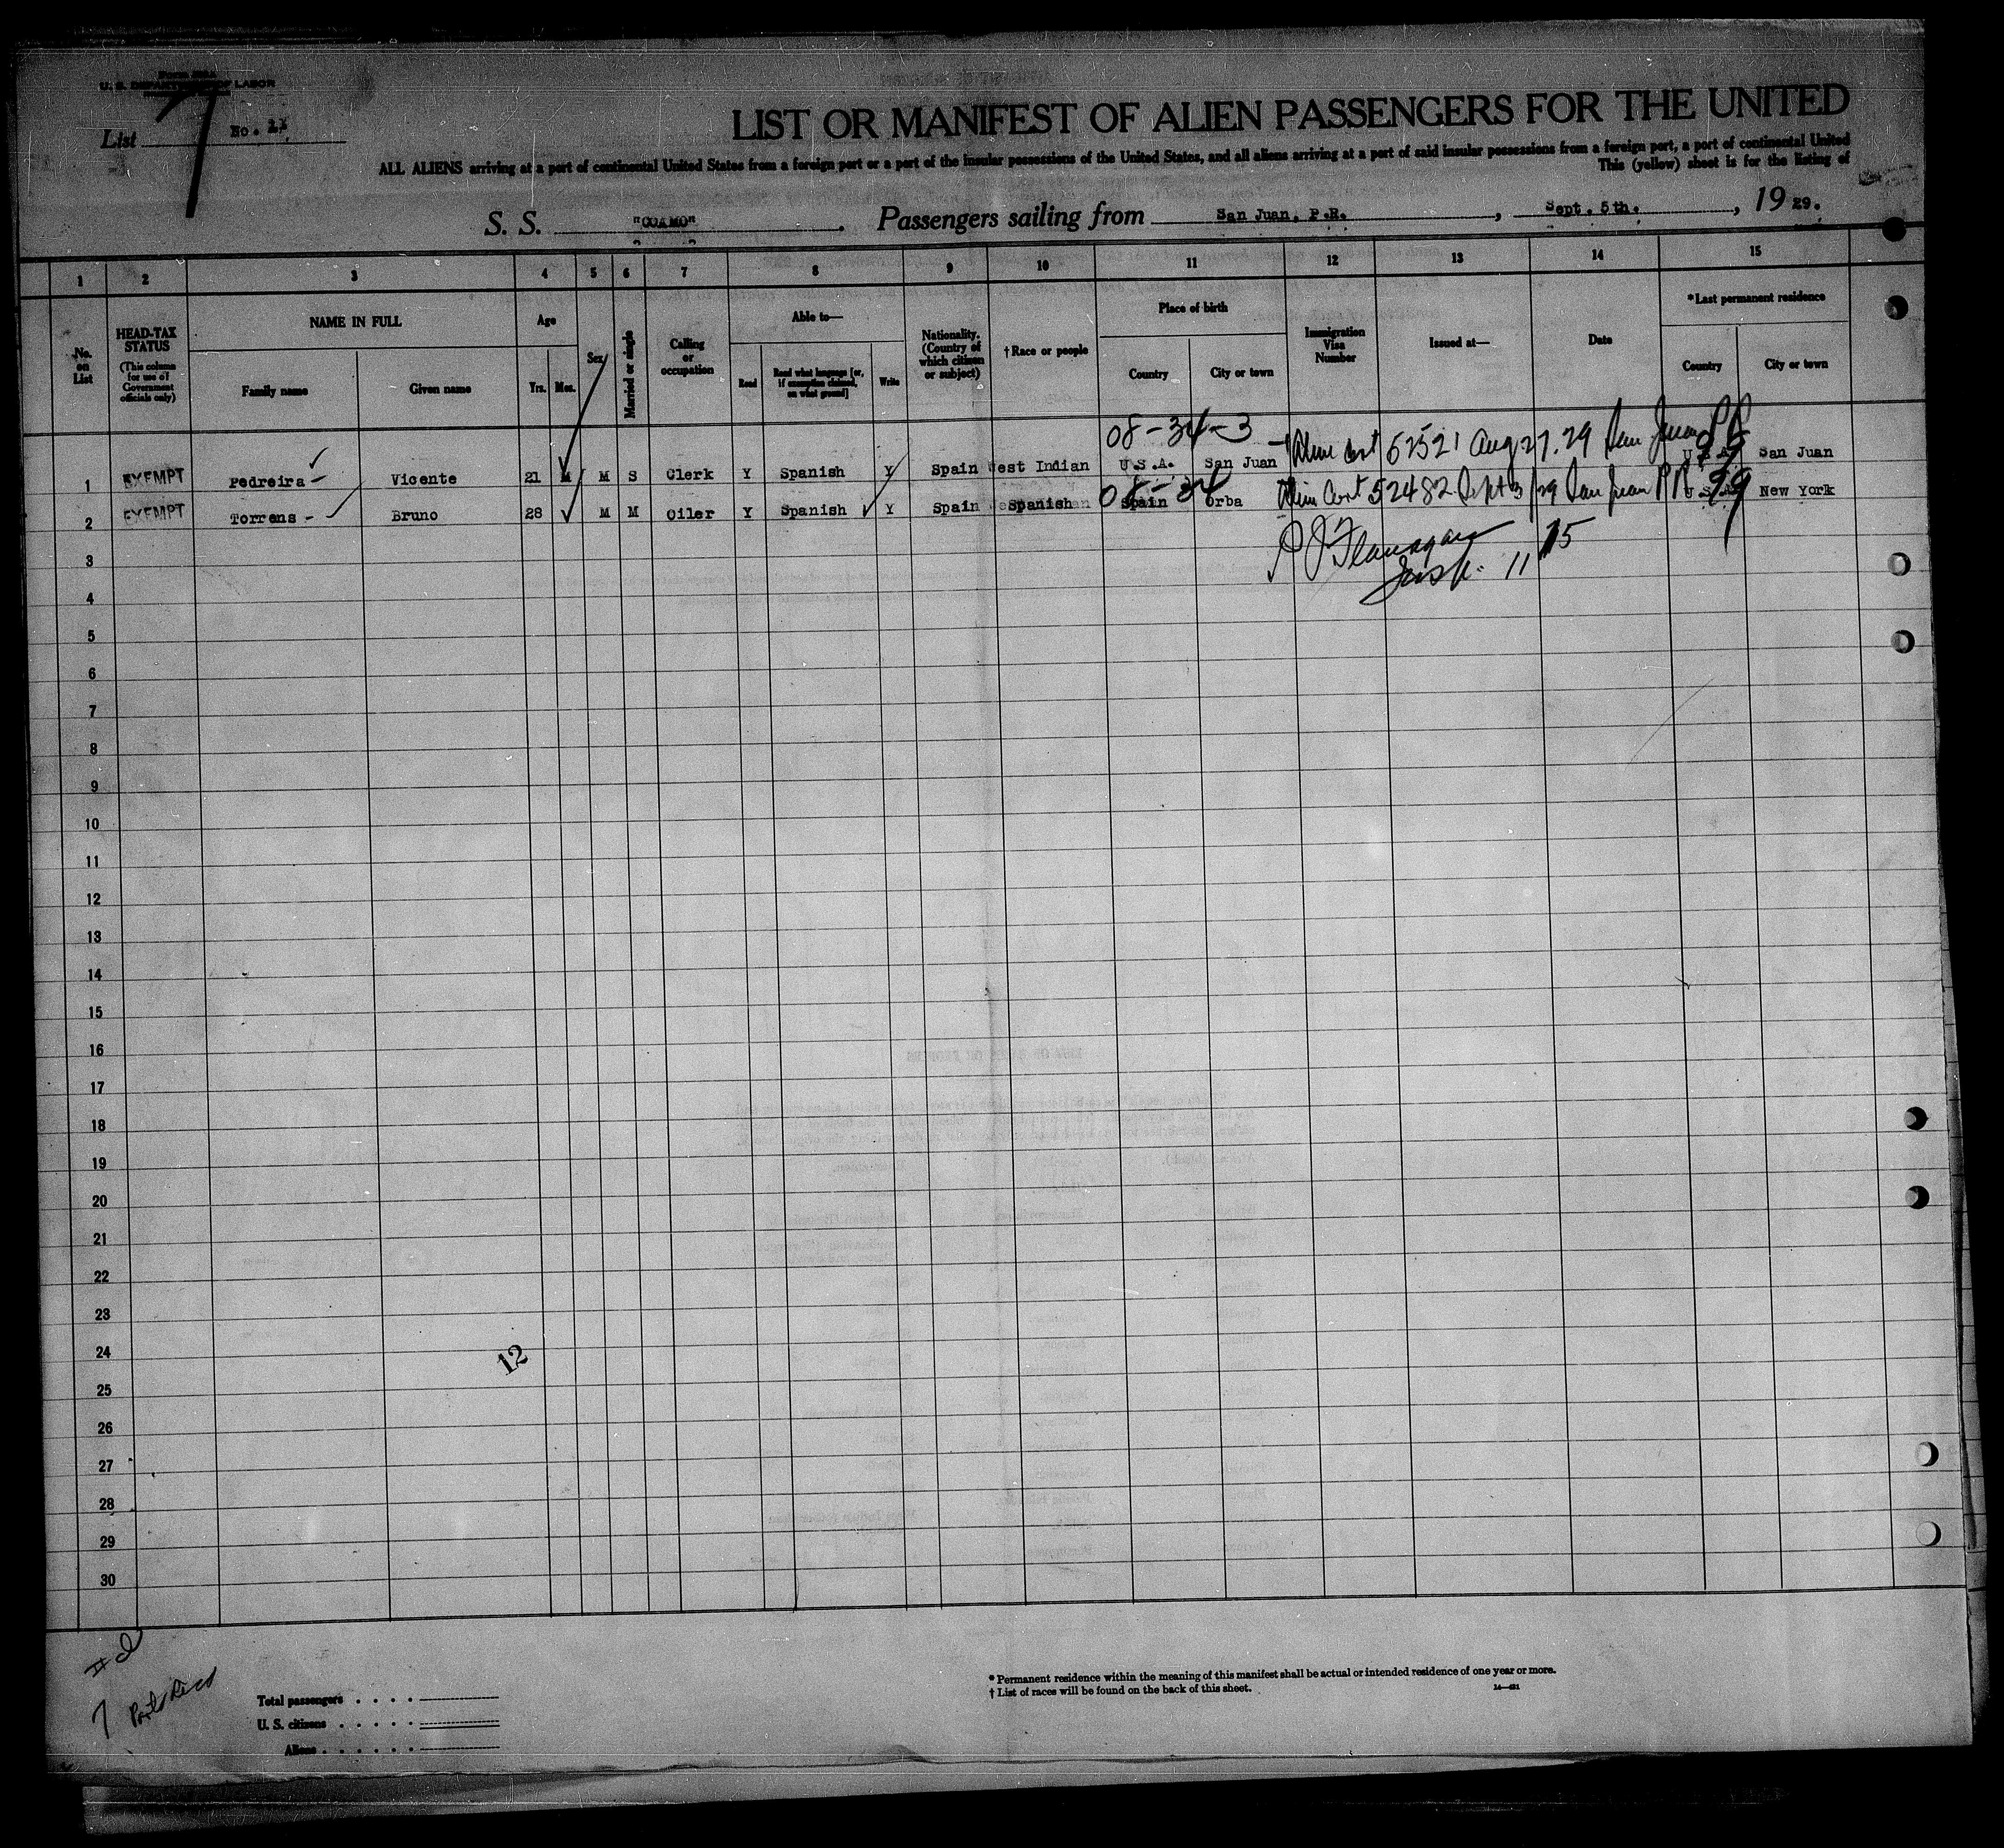 U. S. DEPARTMENT OF LABOR
List 7 No.
LIST OR MANIFEST OF ALIEN PASSENGERS FOR THE UNITED
ALL ALIENS arriving at a port of continental United States from a foreign port or a port of the insular possessions of the United States, and all aliens arriving at a port of said insular possessions from a foreign port, a port of continental United
This (yellow) sheet is for the listing of
S. S. "COAMO". Passengers sailing from San Juan, P.R., Sept. 5th., 1929.
1 2 3 4 5 6 7 8 9 10 11 12 13 14 15
No. on List
HEAD-TAX STATUS
(This column for use of Government officials only)
NAME IN FULL
Family name
Given name
Age
Yrs.
Mos.
Sex
Married or single
Calling or occupation
Able to—
Read
Read what language [or, if exemption claimed, on what ground]
Write
Nationality. (Country of which citizen or subject)
† Race or people
Place of birth
Country
City or town
Immigration Visa Number
Issued at—
Date
*Last permanent residence
Country
City or town
08-34-3
1 EXEMPT Pedreira Vicente 21 M M S Clerk Y Spanish Y Spain West Indian U.S.A. San Juan Alien Cert 52521 Aug 27.29 San Juan PR U.S.A. San Juan
99
2 EXEMPT Torrens Bruno 28 M M Oiler Y Spanish Y Spain Spanish Spain Orba Alien Cert 52482 Sept 3/29 San Juan PR U.S.A. New York
99
3 P J Flanagan
Insp. 11 15
4
5
6
7
8
9
10
11
12
13
14
15
16
17
18
19
20
21
22
23
24
12
25
26
27
28
29
30
7 Porto Rico
Total passengers
U. S. citizens
Aliens
* Permanent residence within the meaning of this manifest shall be actual or intended residence of one year or more.
† List of races will be found on the back of this sheet.